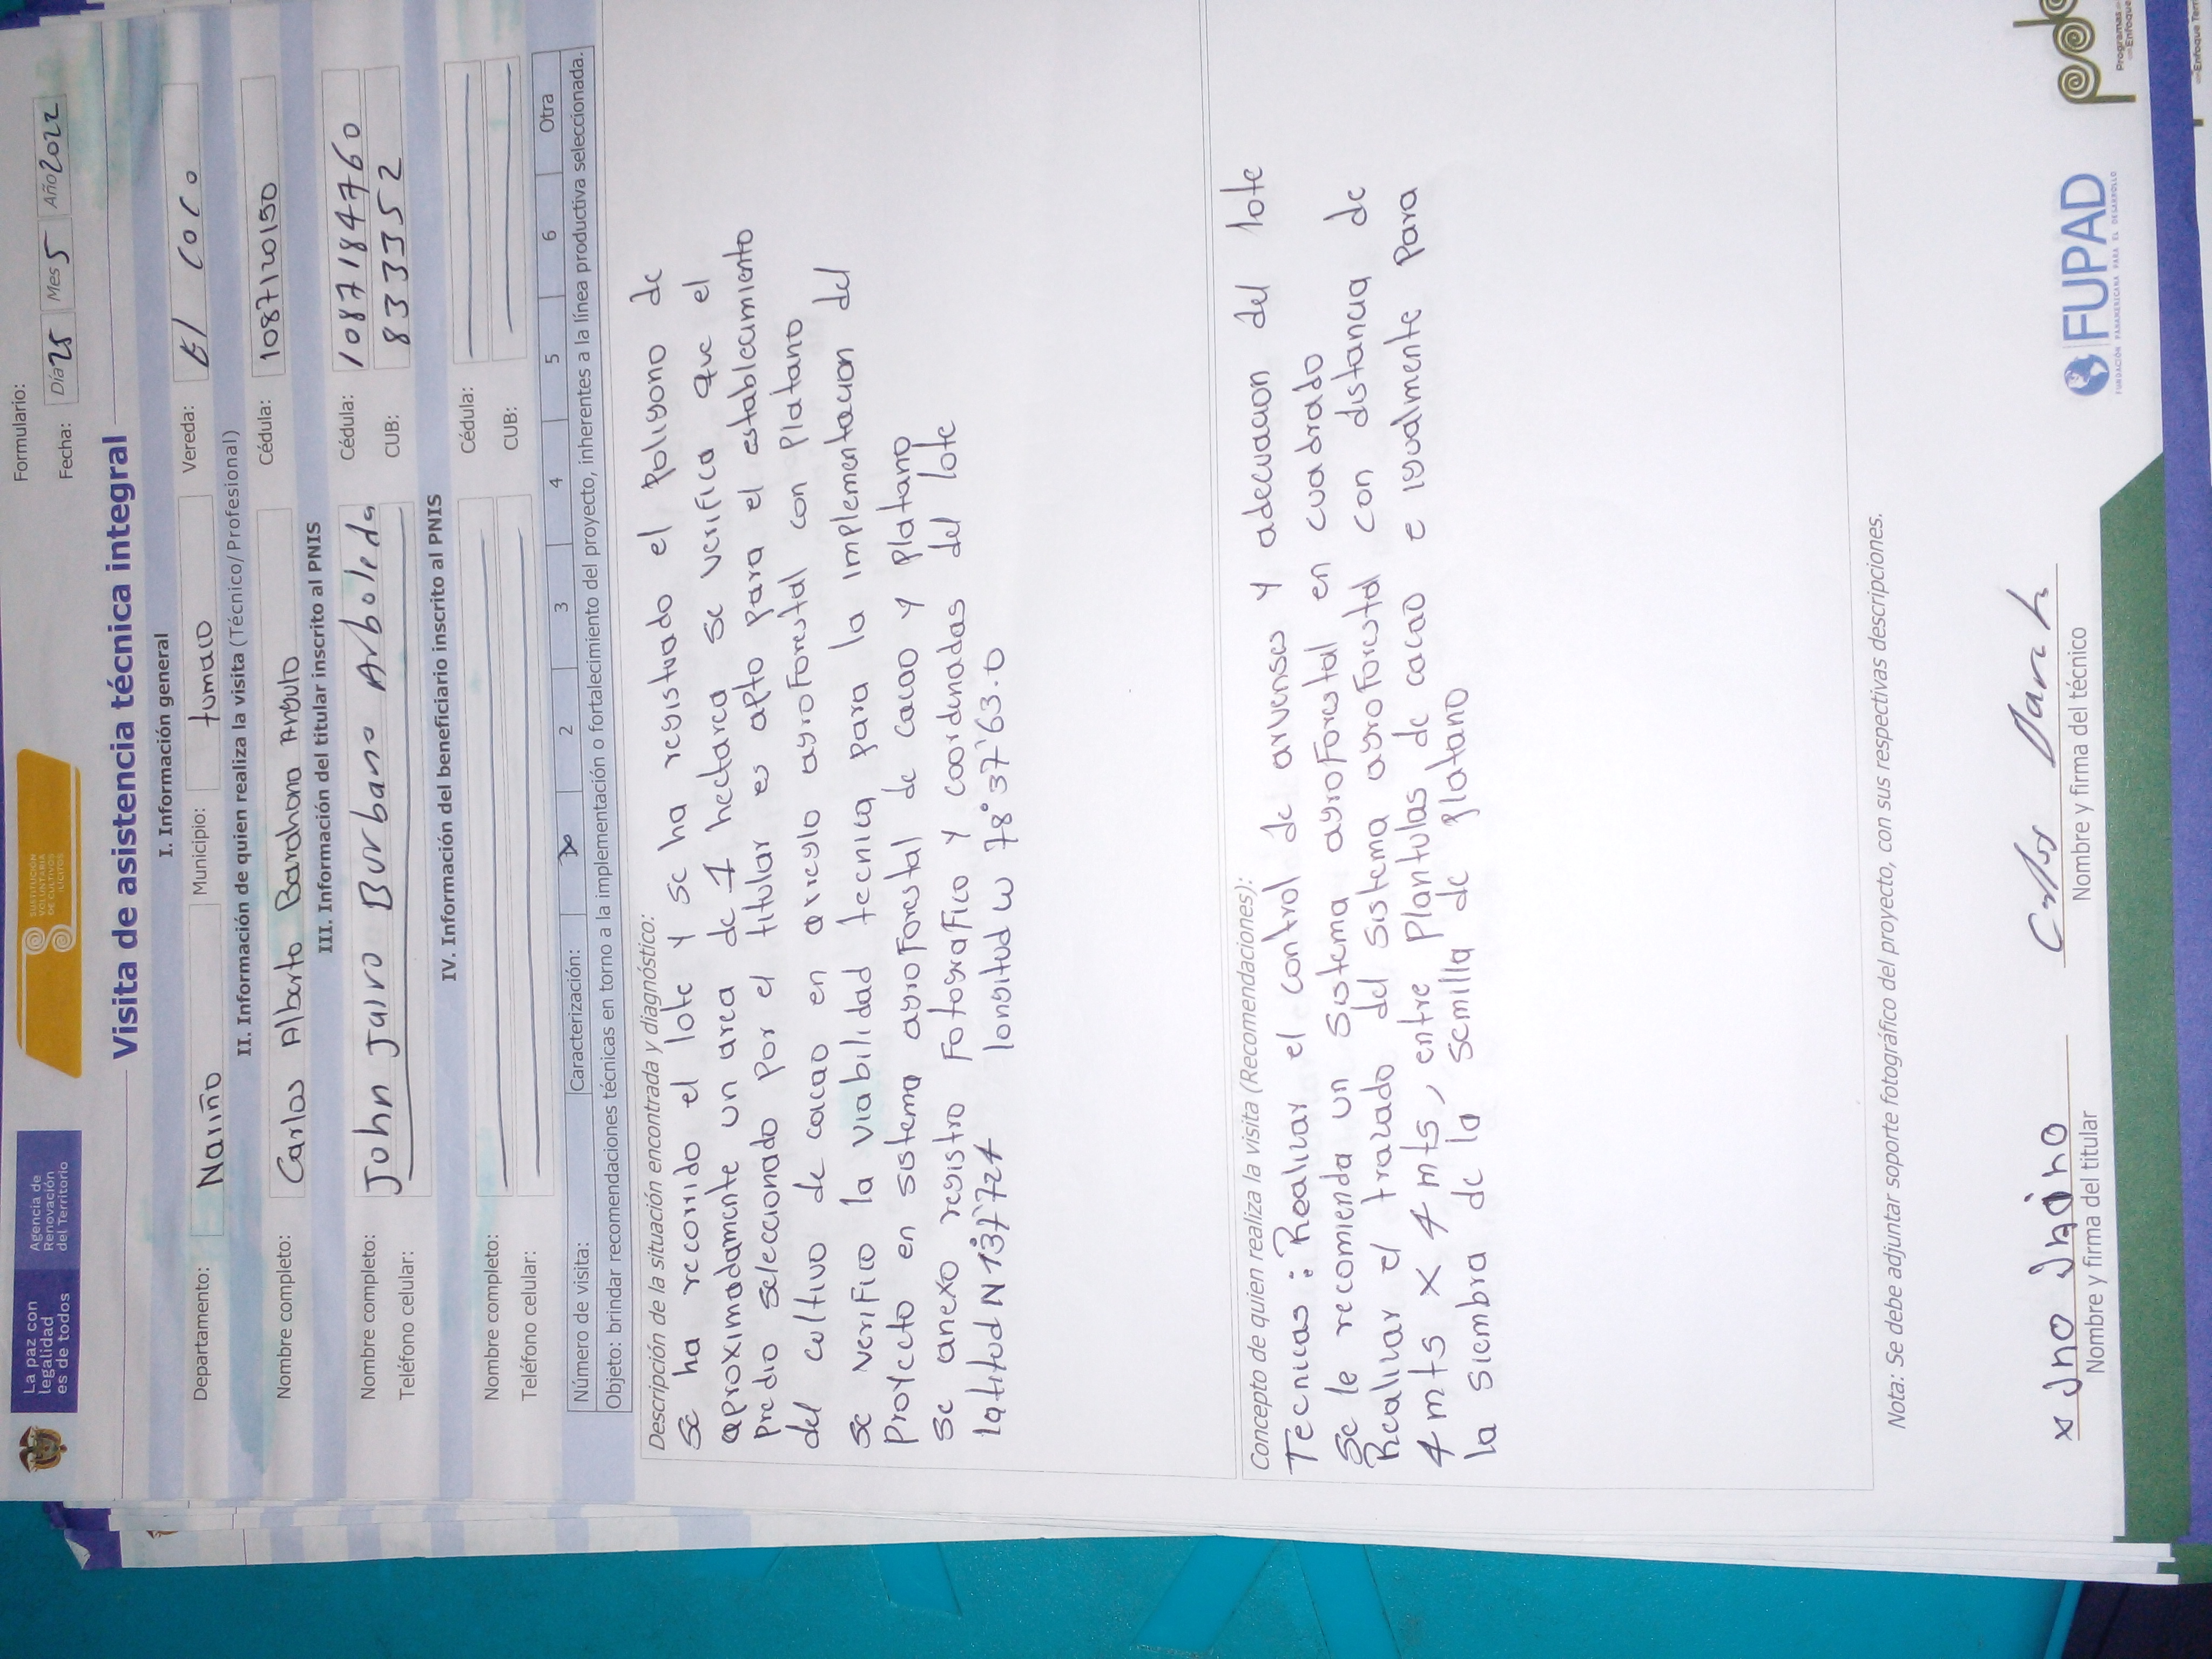 La paz con
legalidad
es de todos
Agencia de
Renovación
del Territorio
SUSTITUCIÓN
VOLUNTARIA
DE CULTIVOS
ILÍCITOS
Formulario:
Fecha: Día 25 Mes 5 Año 2022
Visita de asistencia técnica integral
I. Información general
Departamento: Nariño Municipio: tumaco Vereda: El Coco
II. Información de quien realiza la visita (Técnico/Profesional)
Nombre completo: Carlos Alberto Barahona Angulo Cédula: 1087120150
III. Información del titular inscrito al PNIS
Nombre completo: John Jairo Burbano Arboleda Cédula: 1087184760
Teléfono celular: CUB: 833352
IV. Información del beneficiario inscrito al PNIS
Nombre completo: Cédula:
Teléfono celular: CUB:
Número de visita: Caracterización: X 2 3 4 5 6 Otra
Objeto: brindar recomendaciones técnicas en torno a la implementación o fortalecimiento del proyecto, inherentes a la línea productiva seleccionada.
Descripción de la situación encontrada y diagnóstico:
se ha recorrido el lote y se ha registrado el Poligono de
aproximadamente un area de 1 hectarea se verifica que el
predio seleccionado por el titular es apto para el establecimiento
del cultivo de cacao en arreglo agroForestal con Platano
se veriFico la viabilidad tecnica para la implementacion del
Proyecto en sistema agroForestal de cacao y platano
se anexo registro FotograFico y coordenadas del lote
latitud N 1°37'724 longitud w 78°37'63.0
Concepto de quien realiza la visita (Recomendaciones):
Tecnicas: Realizar el control de arvenses y adecuacion del lote
se le recomienda un sistema agroForestal en cuadrado
Realizar el trazado del sistema agroForestal con distancia de
4 mts x 4 mts, entre Plantulas de cacao e igualmente Para
la siembra de la semilla de platano
Nota: Se debe adjuntar soporte fotográfico del proyecto, con sus respectivas descripciones.
x Jno Jaino
Nombre y firma del titular
Nombre y firma del técnico
FUPAD
FUNDACIÓN PANAMERICANA PARA EL DESARROLLO
Programas
Enfoque